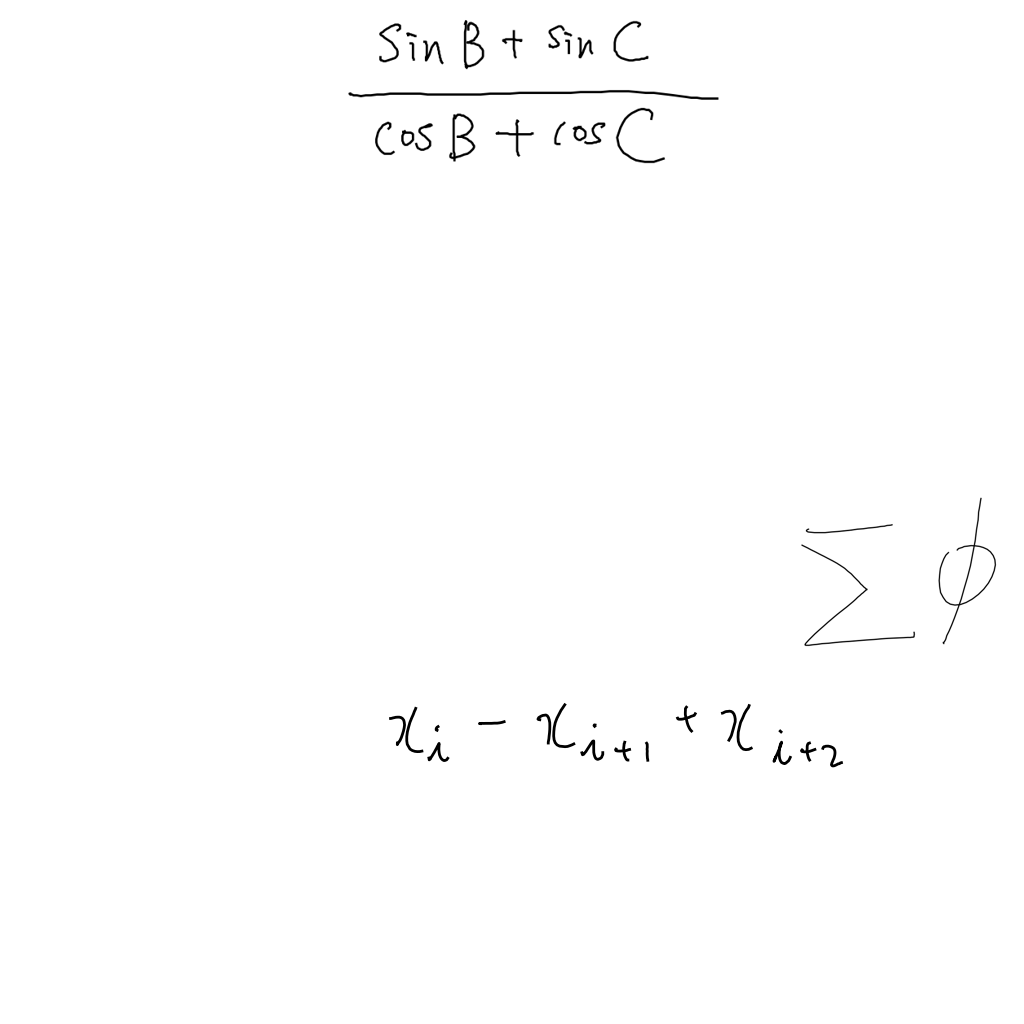 sin B + sin C
cos B + cos C
∑ ϕ
x_i - x_{i+1} + x_{i+2}